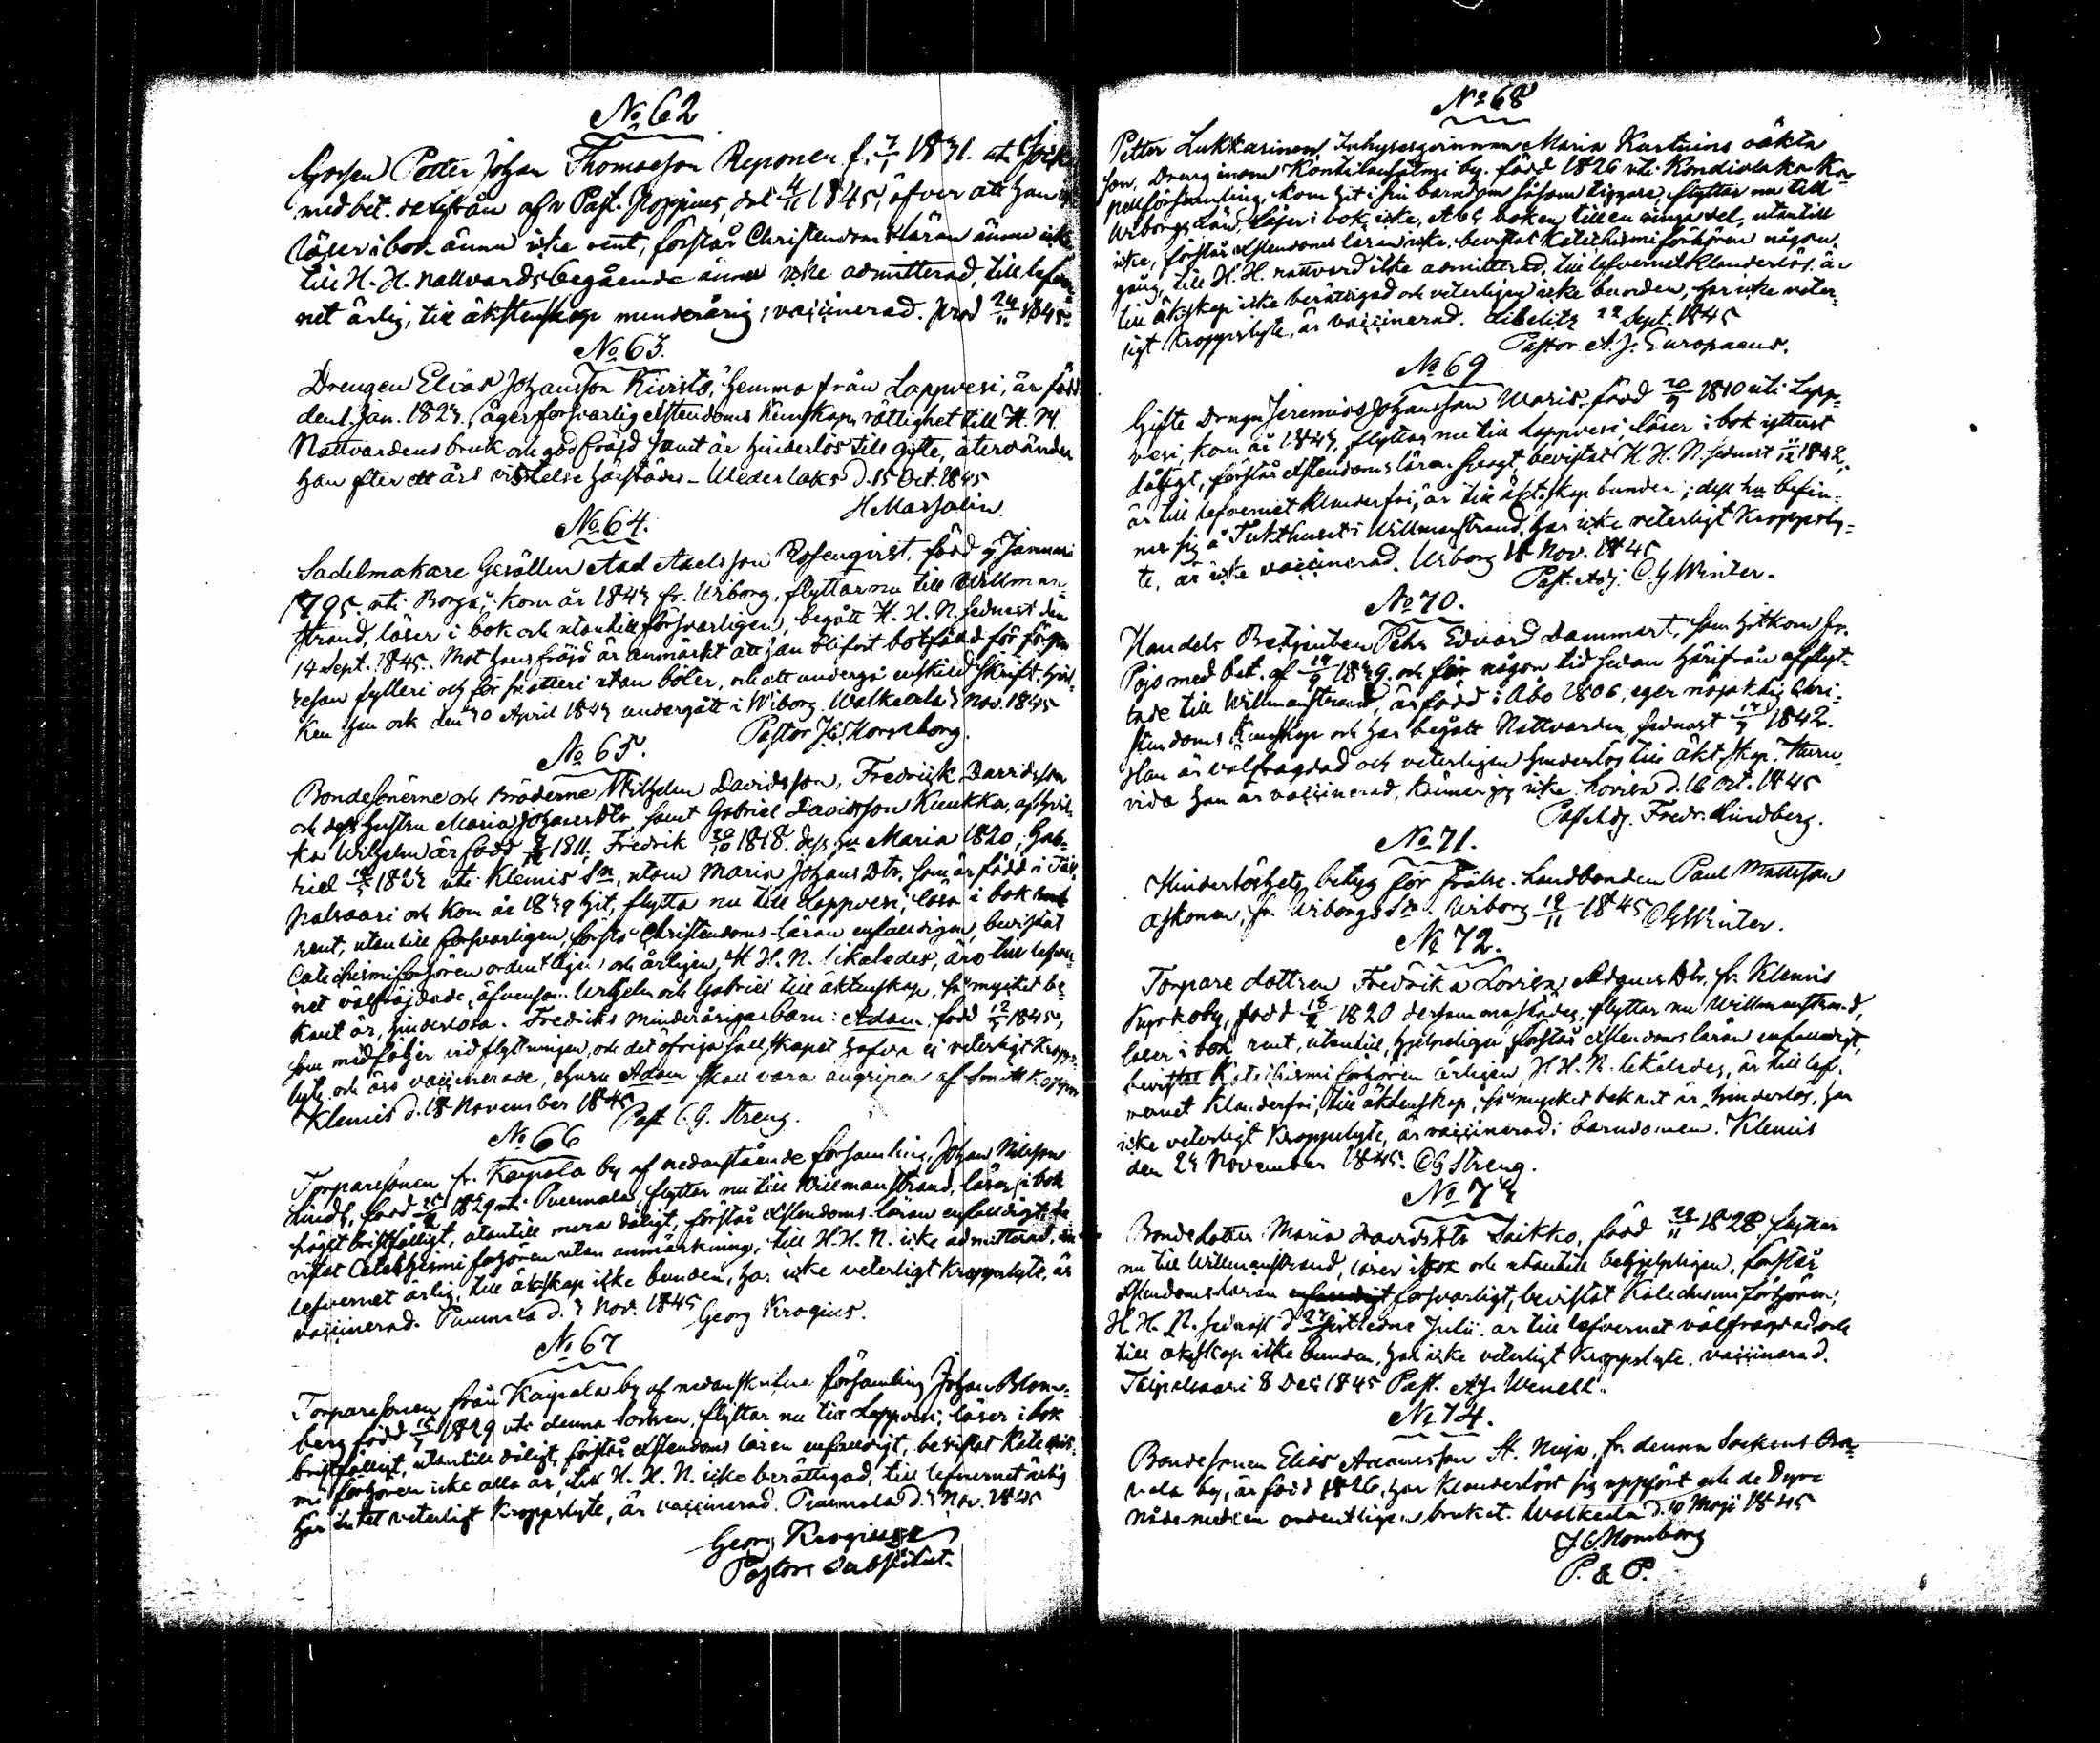 No 62
Gossen Petter Johan Thomasson Reponen f. 7/1 1831. uti Jock
med bet. derifrån af v Past. Hoppius, dat 4/11 1845, öfver att han
läser i bok ännu icke rent, förstår Christendomsläran ännu icke
till H. H. nattvardsbegående ännu icke admitterad, till lefver
net ärlig, till äktenskap minderårig; vaccinerad. prod 24/11 1845.
No 63.
Drengen Elias Johansson Kiiristö, hemma från Lappvesi, är född
den 1. Jan. 1823, äger försvarlig Xstendoms kunskap, rättighet till H. H.
Nattvardens bruk och god fräjd samt är hinderlös till gifte, återvänder
han efter ett års vistelse härstädes – Wederlaks d. 15 Oct. 1845
H Marsalin.
No 64.
Sadelmakare Gesällen Axel Axelsson Rosenqvist, född 9 Januari
1795. uti Borgå, kom år 1843 fr. Wiborg, flyttar nu till Willman-
strand, läser i bok och utantill försvarligen, begått H. H. N. sednast den
14 Sept. 1845. Mot hans fräjd är anmärkt att han blifvit botfäld för första
resan fylleri och för fratteri utan böter, och att undergå enskild skrift, hvil-
ken han ock den 30 April 1843 undergått i Wiborg. Walkeala 3 Nov. 1845
Pastor J. C. Hornborg.
No 65.
Bondesönerne och Bröderne Wilhelm Davidsson, Fredrick Davidsson
och dess hustru Maria Johansdtr samt Gabriel Davidsson Kuukka, af hvil-
ka Wilhelm är född 1811, Fredrik 20/10 1818. dess hu Maria 1820, Gab-
riel 1823 uti Klemis Sn, utom Maria Johans Dtr, som är född i Tai-
palsaari och kom år 1839 hit, flytta nu till Lappvesi; läsa i bok
rent, utantill försvarligen, förstå Christendoms-läran enfaldigen, bevistat
Catechismi förhören ordentligen och årligen, H. H. N. likaledes, äro till lefver-
net välfräjdade, äfvensom Wilhelm och Gabriel till äktenskap, så mycket be-
kant är, hinderlösa. Fredriks minderåriga barn: Adam, född 1845,
som medföljer vid flyttningen, och det öfriga sällskapet hafva ej veterligt kropps-
lyte och äro vaccinerade, ehuru Adam skall vara angripen af smittkoppor
Klemis d. 18 November 1845
Past C. G. Streng.
No 66
Torparesonen fr. Kaipola by af nedanstående församling, Johan Nilsson
Lindh, född 25/2 1829 uti Puumala, flyttar nu till Willmanstrand, läser i bok
högst bristfälligt, utantill mera dåligt, förstår Xstendoms-läran enfaldigt, be
vistat Catekhismi förhören utan anmärkning, till H. H. N. icke admitterad,
lefvernet ärlig, till äktskap icke bunden, har icke veterligt kroppslyte, är
vaccinerad. Puumala d. 3 Nov. 1845 Georg Krogius.
No 67
Torparesonen från Kaipala by af nedanskrifne församling Johan Blom-
berg född 15/7 1829 uti denna Socken, flyttar nu till Lappvesi, läser i bok
bristfälligt, utantill dåligt, förstår Xstendoms läran enfaldigt, bevistat Katechis-
mi förhören icke alla år, till H. H. N. icke berättigad, till lefvernet ärlig
har intet veterligt kroppslyte, är vaccinerad. Puumala d. 3 Nov. 1845
Georg Krogius
Pastors Substitut.
No 68
Petter Lukkarinen Inhysesqvinnan Maria Kurtuins oäkta
son, Dreng inom Kontilansalmi by. född 1826 uti Kondiolaka Ka-
pellförsamling, kom hit i sin barndom såsom tiggare, flyttar nu till
Wiborgs Län, läser i bok icke, Abc boken till en ringa del, utantill
icke, förstår Xstendoms läran icke, bevistat Katechismi förhören någon
gång, till H. H. nattvard icke admitterad, till lefvernet klanderlös, är
till äktskap icke berättigad och veterligen icke bunden, har icke veter-
ligt kroppslyte, är vaccinerad. Libelitz 22 Sept. 1845
Pastor A. J. Europaeus.
No 69
Gifte Drengen Jeremias Johansson Waris, född 20/9 1810 uti Lapp-
vesi, kom år 1843, flyttar nu till Lappvesi, läser i bok ytterst
dåligt, förstår Xstendoms läran svagt, bevistat H. H. N. sednast 1842,
är till lefvernet klanderfri, är till äkt.skap bunden; dess hu befin-
ner sig å Tukthuset i Willmanstrand, har icke veterligt kroppsly-
te, är icke vaccinerad. Wiborg 18 Nov. 1845
Past. Adj. C. G Winter.
No 70.
Handels Betjenten Pehr Edvard Dammert, som hitkom fr.
Pojo med bet. af 19/9 1839. och för någon tid sedan härifrån afflyt-
tade till Willmanstrand, är född i Åbo 1806, eger nöjaktig Chri-
stendoms kunskap och har begått Nattvarden sednast 1842.
Han är välfrägdad och veterligen hinderlös till äkt.skap. Huru-
vida han är vaccinerad, känner jag icke. Lovisa d. 16 Oct. 1845
Past Adj. Fredr. Lindberg.
No 71.
Hinderlöshets betyg för Frälse-Landbonden Paul Mattsson
Askonen, fr. Wiborgs Sn. Wiborg 19/11 1845 CG Winter.
No 72.
Torpare dottren Fredrika Lovisa Adams Dtr, fr. Klemis
Kyrkoby, född 18/2 1820 dersammastädes, flyttar nu Willmanstrand,
läser i bok rent, utantill, hjelpeligen förstår Xstendoms läran enfaldigt,
bevistat Katechismi förhören årligen, H. H. N. likaledes, är till lef-
vernet klanderfri, till äktenskap, så mycket bekant är hinderlös, har
icke veterligt kroppslyte, är vaccinerad i barndomen. Klemis
den 23 November 1845. CG Streng.
No 73
Bondedotter Maria Davidsdtr Saikko, född 29/11 1828, flyttar
nu till Willmanstrand, läser i bok och utantill behjelpligen, förstår
Xstendomsläran enfaldigt försvarligt, bevistat Katechismi förhören;
H. H. N. sednast d 27 sistledne Julii. är till lefvernet välfrägdad och
till äktskap icke bunden, har icke veterligt kroppslyte, vaccinerad.
Taipalsaari 8 Dec 1845 Past. A. J. Wenell.
No 74.
Bondesonen Elias Adamsson St. Nuija, fr. denna Sockens Ora-
vala by, är född 1826, har klanderlöst sig uppfört och de Dyra
nådemedlen ordentligen brukat. Walkeala d. 10 Maji 1845
J. C. Hornborg
P. & P.